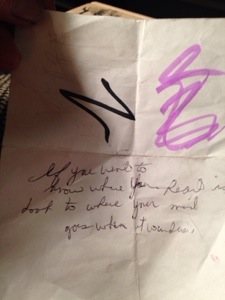 If you want to
know where your heart is
look to where your mind
goes when it wanders